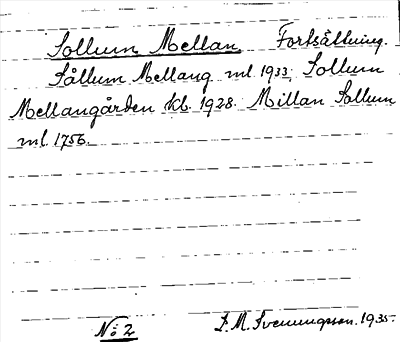 Sollum Mellan. Fortsättning.
Sållum Mellang ml. 1933; Sollum
Mellangården kb. 1928. Millan Sollum
ml. 1756.
No: 2 S. M. Svenungsson. 1935.